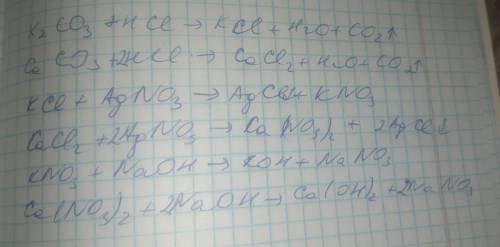 K₂CO₃ + HCl → KCl + H₂O + CO₂↑
CaCO₃ + 2HCl → CaCl₂ + H₂O + CO₂↑
KCl + AgNO₃ → AgCl↓ + KNO₃
CaCl₂ + 2AgNO₃ → Ca(NO₃)₂ + 2AgCl↓
KNO₃ + NaOH → KOH + NaNO₃
Ca(NO₃)₂ + 2NaOH → Ca(OH)₂ + 2NaNO₃